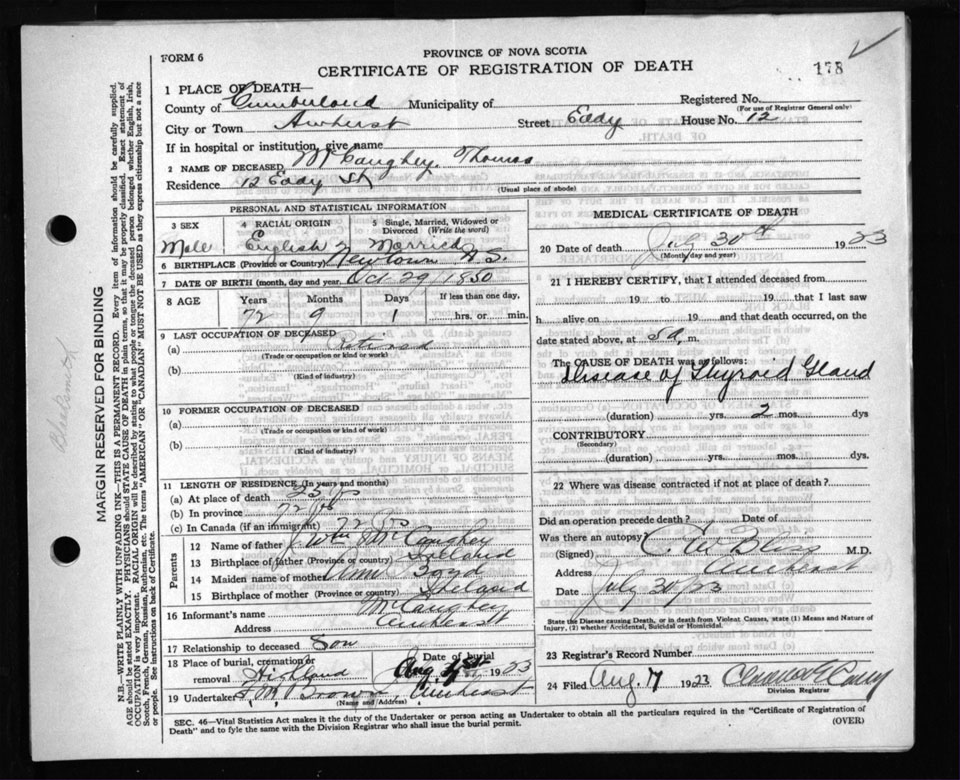 FORM 6
PROVINCE OF NOVA SCOTIA
CERTIFICATE OF REGISTRATION OF DEATH
178
1 PLACE OF DEATH—
County of Cumberland Municipality of Registered No.
(For use of Registrar General only)
City or Town Amherst Street Eddy House No. 12
If in hospital or institution, give name
2 NAME OF DECEASED McCaughey, Thomas
Residence 12 Eddy St (Usual place of abode)
PERSONAL AND STATISTICAL INFORMATION
3 SEX 4 RACIAL ORIGIN 5 Single, Married, Widowed or Divorced (Write the word)
Male English Married
6 BIRTHPLACE (Province or Country) Newtown N.S.
7 DATE OF BIRTH (month, day and year) Oct 29/1850
8 AGE Years Months Days If less than one day,
72 9 1 hrs. or min.
9 LAST OCCUPATION OF DECEASED
(a) Retired
(Trade or occupation or kind or work)
(b)
(Kind of industry)
10 FORMER OCCUPATION OF DECEASED
(a)
(Trade or occupation or kind or work)
(b)
(Kind of industry)
11 LENGTH OF RESIDENCE (In years and months)
(a) At place of death 25 yrs
(b) In province 72 yrs
(c) In Canada (if an immigrant) 72 yrs
Parents
12 Name of father Wm McCaughey
13 Birthplace of father (Province or country) Ireland
14 Maiden name of mother Ann Boyd
15 Birthplace of mother (Province or country) Ireland
16 Informant's name McCaughey
Address Amherst
17 Relationship to deceased Son
18 Place of burial, cremation or removal Highland Date of burial Aug 1st 1923
19 Undertaker Brown, Amherst
(Name and Address)
MEDICAL CERTIFICATE OF DEATH
20 Date of death July 30th 1923
(Month, day and year)
21 I HEREBY CERTIFY, that I attended deceased from
19 to 19 , that I last saw
h alive on 19 and that death occurred, on the
date stated above, at 5a, m.
The CAUSE OF DEATH was as follows:
Disease of Thyroid Gland
(duration) yrs. 2 mos. dys
CONTRIBUTORY
(Secondary)
(duration) yrs. mos. dys.
22 Where was disease contracted if not at place of death?
Did an operation precede death? Date of
Was there an autopsy?
(Signed) C. W. Bliss M.D.
Address Amherst
Date July 30/23
State the Disease causing Death, or in death from Violent Causes, state (1) Means and Nature of Injury, (2) whether Accidental, Suicidal or Homicidal.
23 Registrar's Record Number
24 Filed Aug 7 1923
Division Registrar
SEC. 46—Vital Statistics Act makes it the duty of the Undertaker or person acting as Undertaker to obtain all the particulars required in the "Certificate of Registration of
Death" and to fyle the same with the Division Registrar who shall issue the burial permit. (OVER)
MARGIN RESERVED FOR BINDING
N.B.—WRITE PLAINLY WITH UNFADING INK—THIS IS A PERMANENT RECORD. Every item of information should be carefully supplied.
AGE should be stated EXACTLY. PHYSICIANS should STATE CAUSE OF DEATH in plain terms, so that it may be properly classified. Exact statement of
OCCUPATION is very important. RACIAL ORIGIN will be described by stating to what people or tongue the deceased person belonged whether English, Irish,
Scotch, French, German, Russian, Ruthenian, etc. The terms "AMERICAN" OR "CANADIAN" MUST NOT BE USED as they express citizenship but not a race
or people. See instructions on back of Certificate.